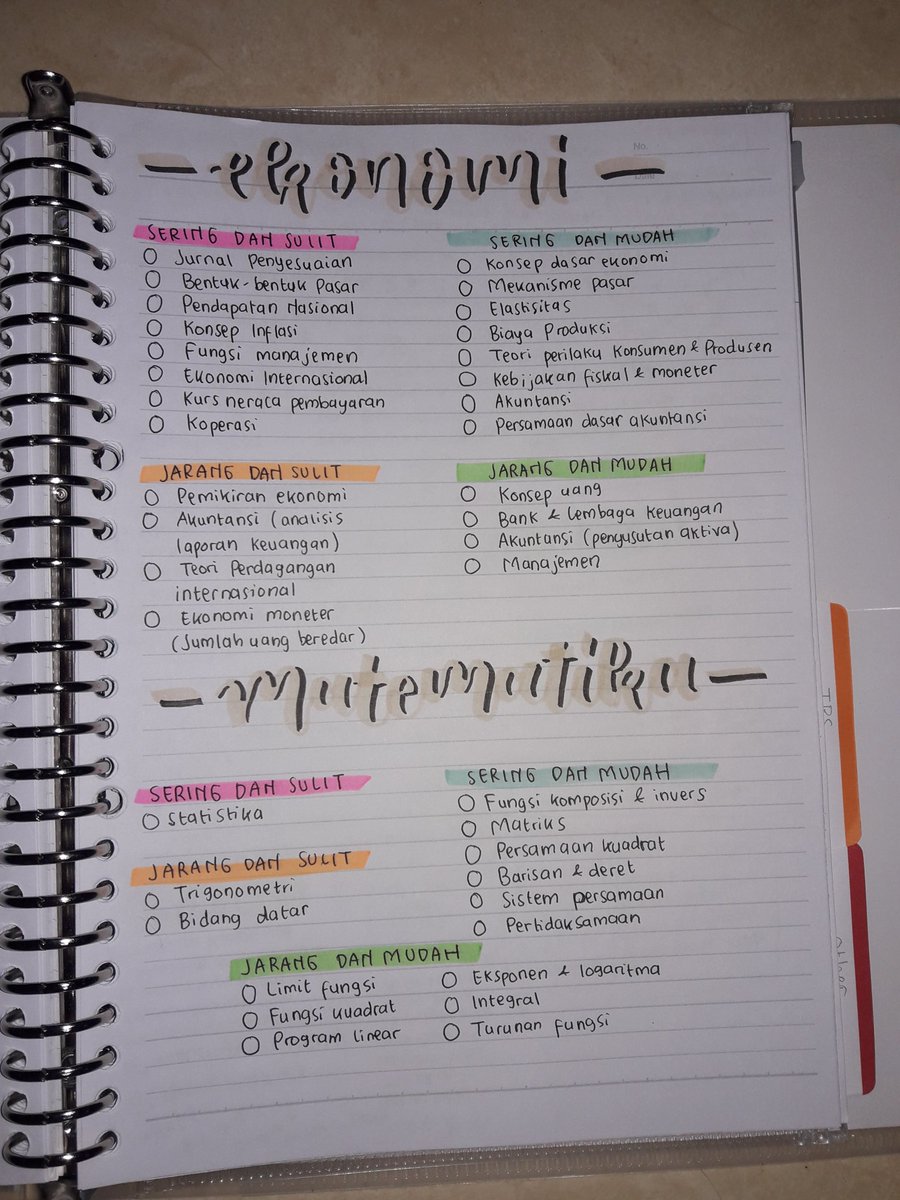 ekonomi
No.
Date
SERING DAN SULIT
Jurnal Penyesuaian
Bentuk-bentuk Pasar
Pendapatan Nasional
Konsep Inflasi
Fungsi manajemen
Ekonomi Internasional
Kurs neraca pembayaran
Koperasi
SERING DAN MUDAH
Konsep dasar ekonomi
Mekanisme pasar
Elastisitas
Biaya Produksi
Teori perilaku Konsumen & Produsen
Kebijakan fiskal & moneter
Akuntansi
Persamaan dasar akuntansi
JARANG DAN SULIT
Pemikiran ekonomi
Akuntansi (analisis
laporan keuangan)
Teori Perdagangan
internasional
Ekonomi moneter
(Jumlah uang beredar)
JARANG DAN MUDAH
Konsep uang
Bank & lembaga keuangan
Akuntansi (penyusutan aktiva)
Manajemen
matematika
SERING DAN SULIT
Statistika
JARANG DAN SULIT
Trigonometri
Bidang datar
SERING DAN MUDAH
Fungsi komposisi & invers
Matriks
Persamaan kuadrat
Barisan & deret
Sistem persamaan
Pertidaksamaan
JARANG DAN MUDAH
Limit fungsi
Fungsi kuadrat
Program linear
Eksponen & logaritma
Integral
Turunan fungsi